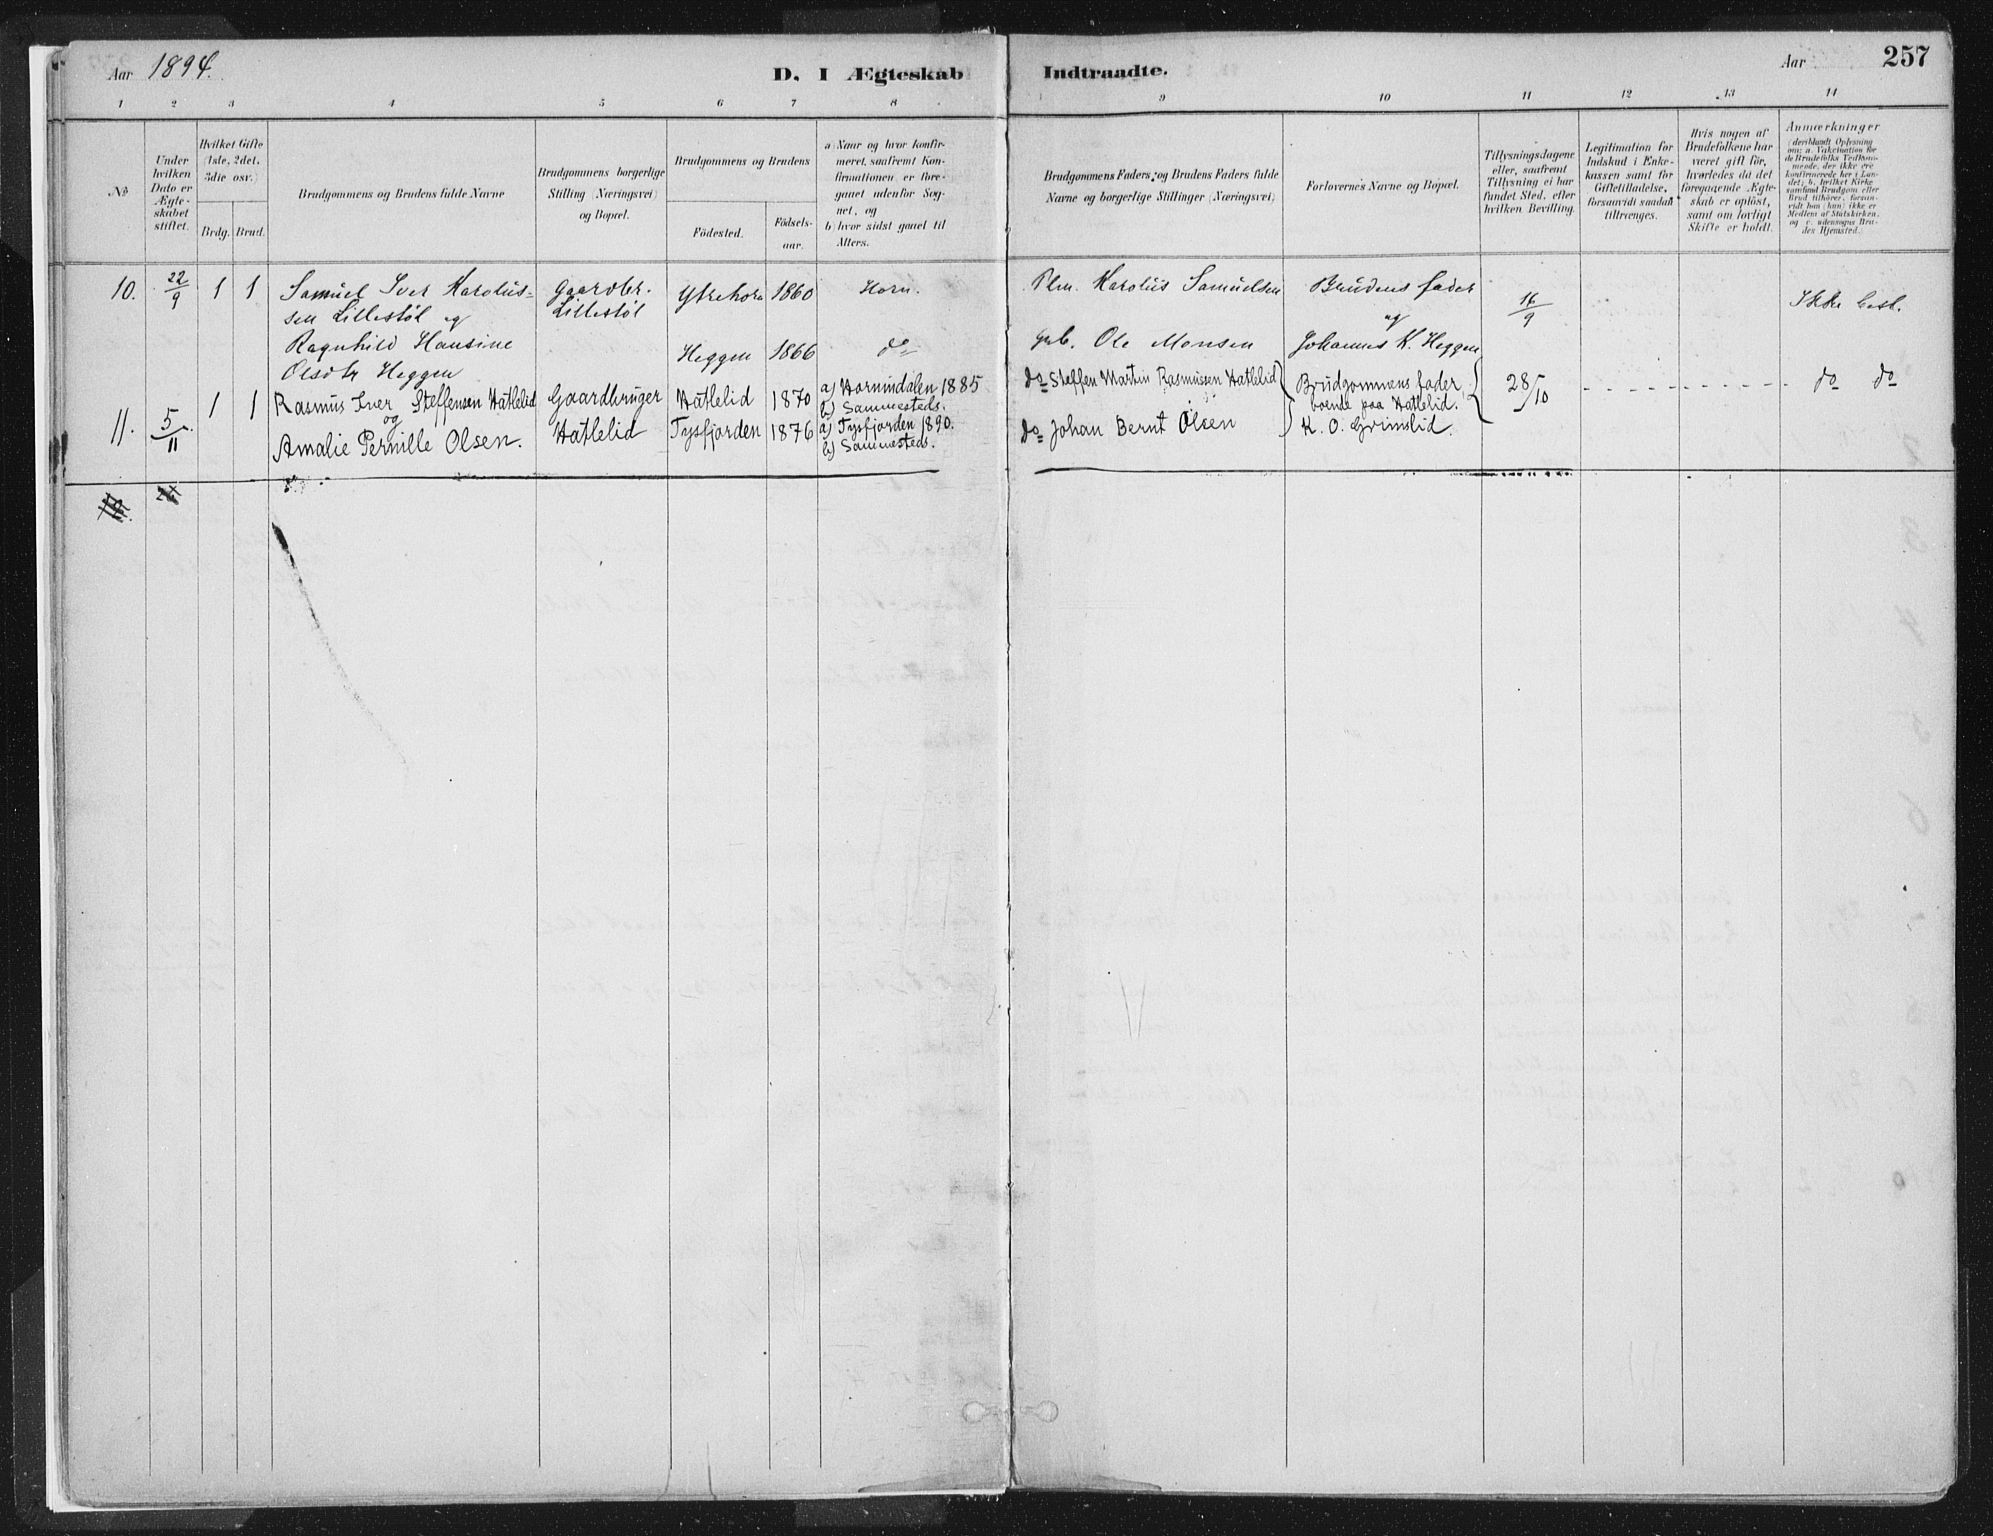 Aar 1894. D. I Ægteskab Indtraadte. Aar 257
1 2 3 4 5 6 7 8 9 10 11 12 13 14
No
Under hvilken Dato er Ægteskabet stiftet.
Hvilket Gifte (1ste, 2det, 3die osv.)
Brdg. Brud.
Brudgommens og Brudens fulde Navne
Brudgommens borgerlige Stilling (Næringsvei) og Bopæl.
Brudgommens og Brudens
Födested.
Födsels-aar.
a) Naar og hvor konfirmeret, saafremt Konfirmationen er foregaaet udenfor Sognet, og
b) hvor sidst gaaet til Alters.
Brudgommens Faders og Brudens Faders fulde Navne og borgerlige Stillinger (Næringsvei)
Forlovernes Navne og Bopæl.
Tillysningsdagene eller, saafremt Tillysning ei har fundet Sted, efter hvilken Bevilling.
Legitimation for Indskud i Enkekassen samt for Giftetilladelse, forsaavidt saadan tiltrænges.
Hvis nogen af Brudefolkene har været gift för, hvorledes da det foregaaende Ægteskab er oplöst, samt om lovligt Skifte er holdt.
Anmærkninger (deriblandt Oplysning om: a. Vakcination for de Brudefolks Vedkommende, der ikke ere konfirmerede her i Landet; b. hvilket Kirkesamfund Brudgom eller Brud tilhörer, forsaavidt han (hun) ikke er Medlem af Statskirken, og c. udensogns Brudens Hjemsted.)
10. 22/9 1 1 Samuel Iver Karolus- Gaardbr. Ytrehorn 1860 Horn. Karolus Samuelsen Brudens fader 16/9 Ikke besl.
sen Lillestöl og Lillestöl og
Ragnhild Hansine Heggen 1866 do Gb. Ole Monsen Johannes K. Heggen
Olsdtr Heggen
11. 5/11 1 1 Rasmus Iver Steffensen Hatlelid Gaardbruger Hatlelid 1870 a) Hornindalen 1885 do Steffen Martin Rasmussen Hatlelid Brudgommens fader 28/10 do do
og b) Sammesteds. boende paa Hatlelid.
Amalie Pernille Olsen. Hatlelid Tysfjorden 1876 a) Tysfjorden 1890. do Johan Bernt Olsen K. O. Grimslid.
b) Sammesteds.